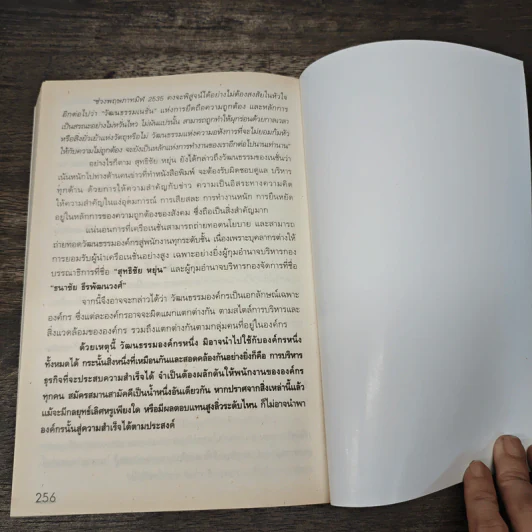 "ช่วงพฤษภาทมิฬ 2535 คงจะพิสูจน์ได้อย่างไม่ต้องสงสัยในหัวใจ
อีกต่อไปว่า "วัฒนธรรมเนชั่น" แห่งการยึดถือความถูกต้อง และหลักการ
เป็นสรณะอย่างไม่หวั่นไหว ไม่ผันแปรนั้น สามารถถูกทำให้ผุกร่อนด้วยกาลเวลา
หรือสิ่งยั่วเย้าแห่งวัตถุหรือไม่ วัฒนธรรมแห่งความอหังการที่จะไม่ยอมก้มหัว
ให้กับความไม่ถูกต้อง จะยังเป็นหลักแห่งการทำงานของเราอีกต่อไปนานเท่านาน"
อย่างไรก็ตาม สุทธิชัย หยุ่น ยังได้กล่าวถึงวัฒนธรรมของเนชั่นว่า
เน้นหนักไปทางด้านคนข่าวที่ทำหนังสือพิมพ์ จะต้องรับผิดชอบดูแล บริหาร
ทุกด้าน ด้วยการให้ความสำคัญกับข่าว ความเป็นอิสระทางความคิด
ให้ความสำคัญในแง่อุดมการณ์ การเสียสละ การทำงานหนัก การยืนหยัด
อยู่ในหลักการของความถูกต้องของสังคม ซึ่งถือเป็นสิ่งสำคัญมาก
แน่นอนการที่เครือเนชั่นสามารถถ่ายทอดนโยบาย และสามารถ
ถ่ายทอดวัฒนธรรมองค์กรสู่พนักงานทุกระดับชั้น เนื่องเพราะบุคลากรต่างให้
การยอมรับผู้นำเครือเนชั่นอย่างสูง เฉพาะอย่างยิ่งผู้กุมอำนาจบริหารกอง
บรรณาธิการที่ชื่อ "สุทธิชัย หยุ่น" และผู้กุมอำนาจบริหารกองจัดการที่ชื่อ
"ธนาชัย ธีรพัฒนวงศ์"
จากนี้จึงอาจจะกล่าวได้ว่า วัฒนธรรมองค์กรเป็นเอกลักษณ์เฉพาะ
องค์กร ซึ่งแต่ละองค์กรอาจจะผิดแผกแตกต่างกัน ตามสไตล์การบริหาร และ
สิ่งแวดล้อมขององค์กร รวมถึงแตกต่างกันตามกลุ่มคนที่อยู่ในองค์กร
ด้วยเหตุนี้ วัฒนธรรมองค์กรหนึ่ง มิอาจนำไปใช้กับองค์กรหนึ่ง
ทั้งหมดได้ กระนั้นสิ่งหนึ่งที่เหมือนกันและสอดคล้องกันอย่างยิ่งก็คือ การบริหาร
ธุรกิจที่จะประสบความสำเร็จได้ จำเป็นต้องผลักดันให้พนักงานขององค์กร
ทุกคน สมัครสมานสามัคคีเป็นน้ำหนึ่งอันเดียวกัน หากปราศจากสิ่งเหล่านี้แล้ว
แม้จะมีกลยุทธ์เลิศหรูเพียงใด หรือมีผลตอบแทนสูงลิ่วระดับไหน ก็ไม่อาจนำพา
องค์กรนั้นสู่ความสำเร็จได้ตามประสงค์
256